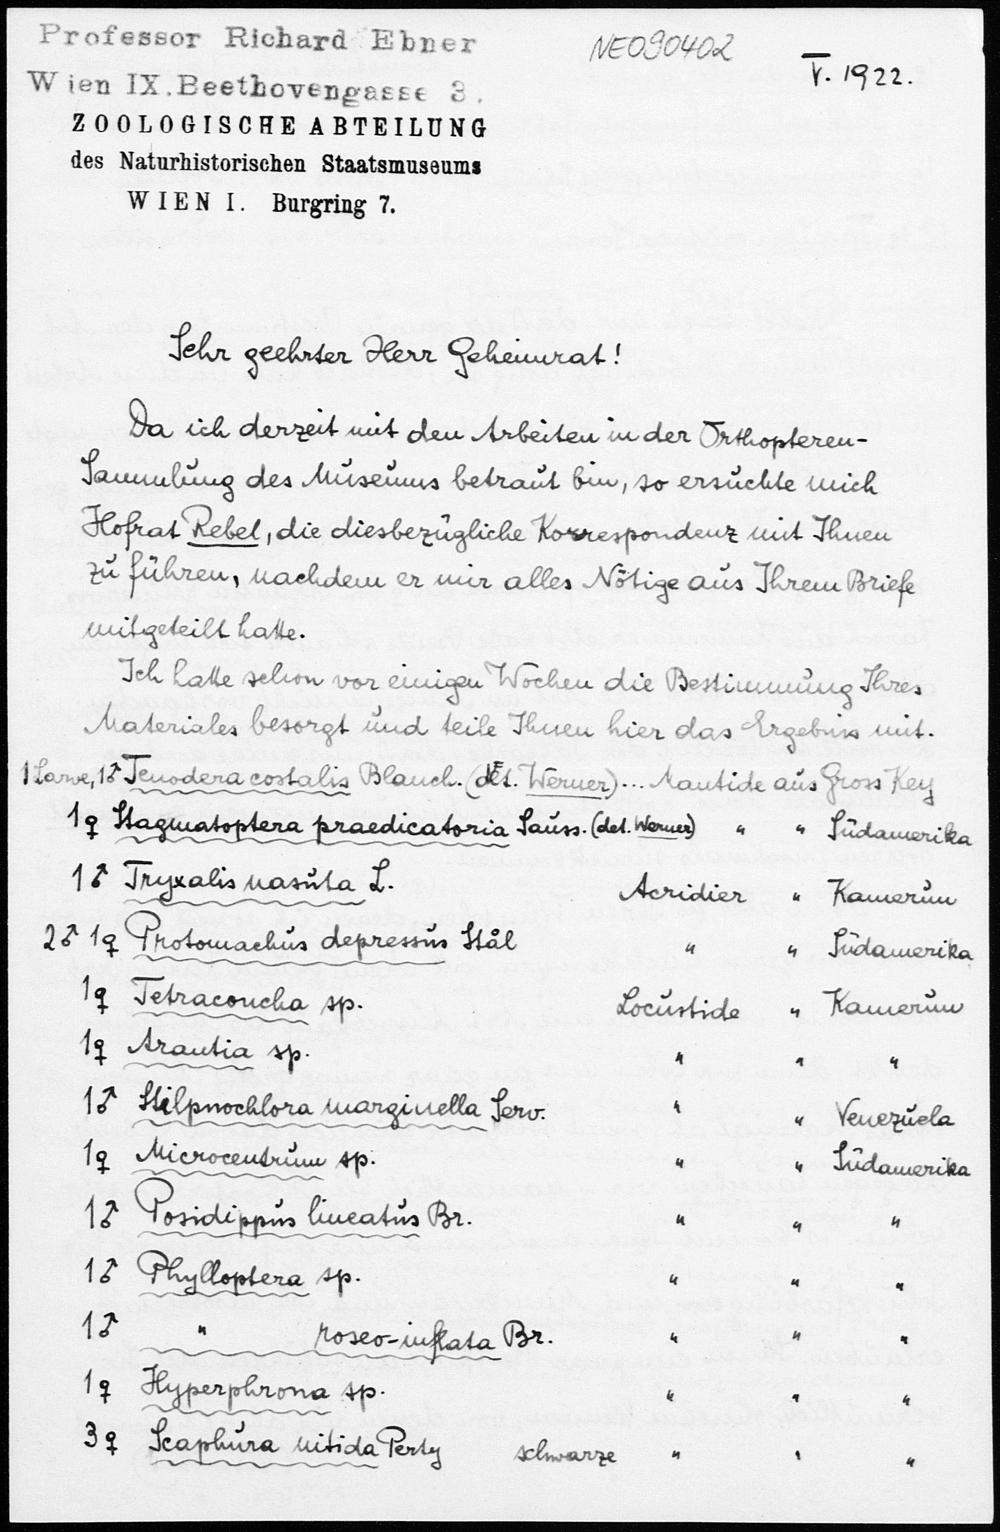 Professor Richard Ebner
Wien IX. Beethovengasse 3.
NE090402
V. 1922.
ZOOLOGISCHE ABTEILUNG
des Naturhistorischen Staatsmuseums
WIEN I. Burgring 7.
Sehr geehrter Herr Geheimrat!
Da ich derzeit mit den Arbeiten in der Orthopteren-
Sammlung des Museums betraut bin, so ersuchte mich
Hofrat Rebel, die diesbezügliche Korrespondenz mit Ihnen
zu führen, nachdem er mir alles Nötige aus Ihrem Briefe
mitgeteilt hatte.
Ich hatte schon vor einigen Wochen die Bestimmung Ihres
Materiales besorgt und teile Ihnen hier das Ergebnis mit.
1 Larve, 1♂ Tenodera costalis Blanch. (det. Werner)... Mantide aus Gross Key
1♀ Stagmatoptera praedicatoria Sauss. (det. Werner) " " Südamerika
1♂ Tryxalis nasuta L. Acridier " Kamerun
2♂ 1♀ Protomachus depressus Stål " " Südamerika
1♀ Tetraconcha sp. Locustide " Kamerun
1♀ Arantia sp. " " "
1♂ Stilpnochlora marginella Serv. " " Venezuela
1♀ Microcentrum sp. " " Südamerika
1♂ Posidippus lineatus Br. " " "
1♂ Phylloptera sp. " " "
1♂ " roseo-inflata Br. " " "
1♀ Hyperphrona sp. " " "
3♀ Scaphura nitida Perty schwarze " " "